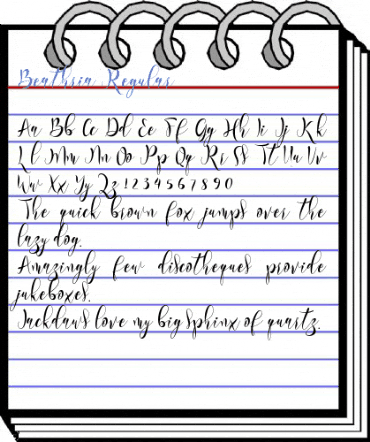 Beathria Regular
Aa Bb Cc Dd Ee Ff Gg Hh Ii Jj Kk
Ll Mm Nn Oo Pp Qq Rr Ss Tt Uu Vv
Ww Xx Yy Zz 1 2 3 4 5 6 7 8 9 0
The quick brown fox jumps over the
lazy dog.
Amazingly few discotheques provide
jukeboxes.
Jackdaws love my big sphinx of quartz.